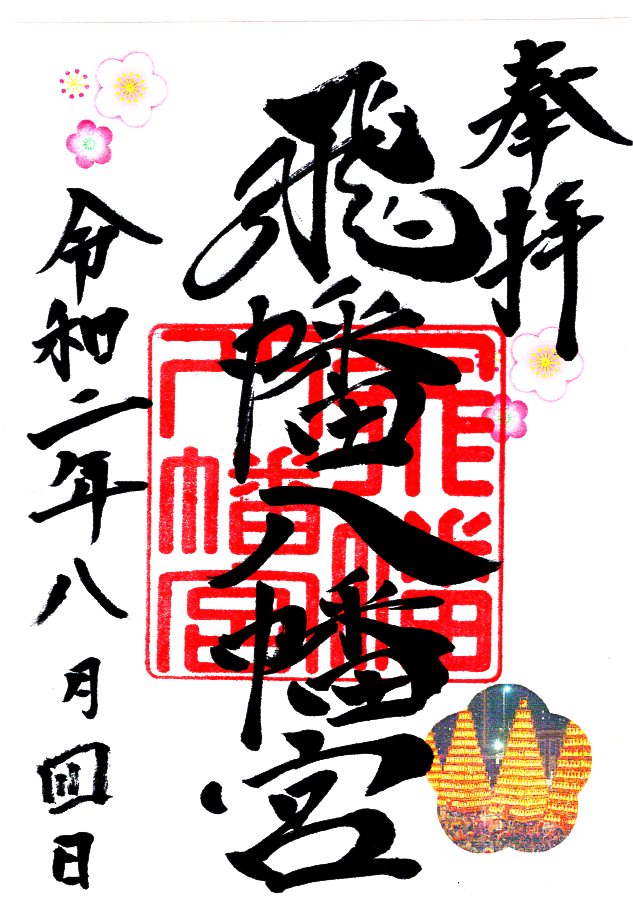 奉拝
飛幡八幡宮
飛幡
八幡宮
令和二年八月四日